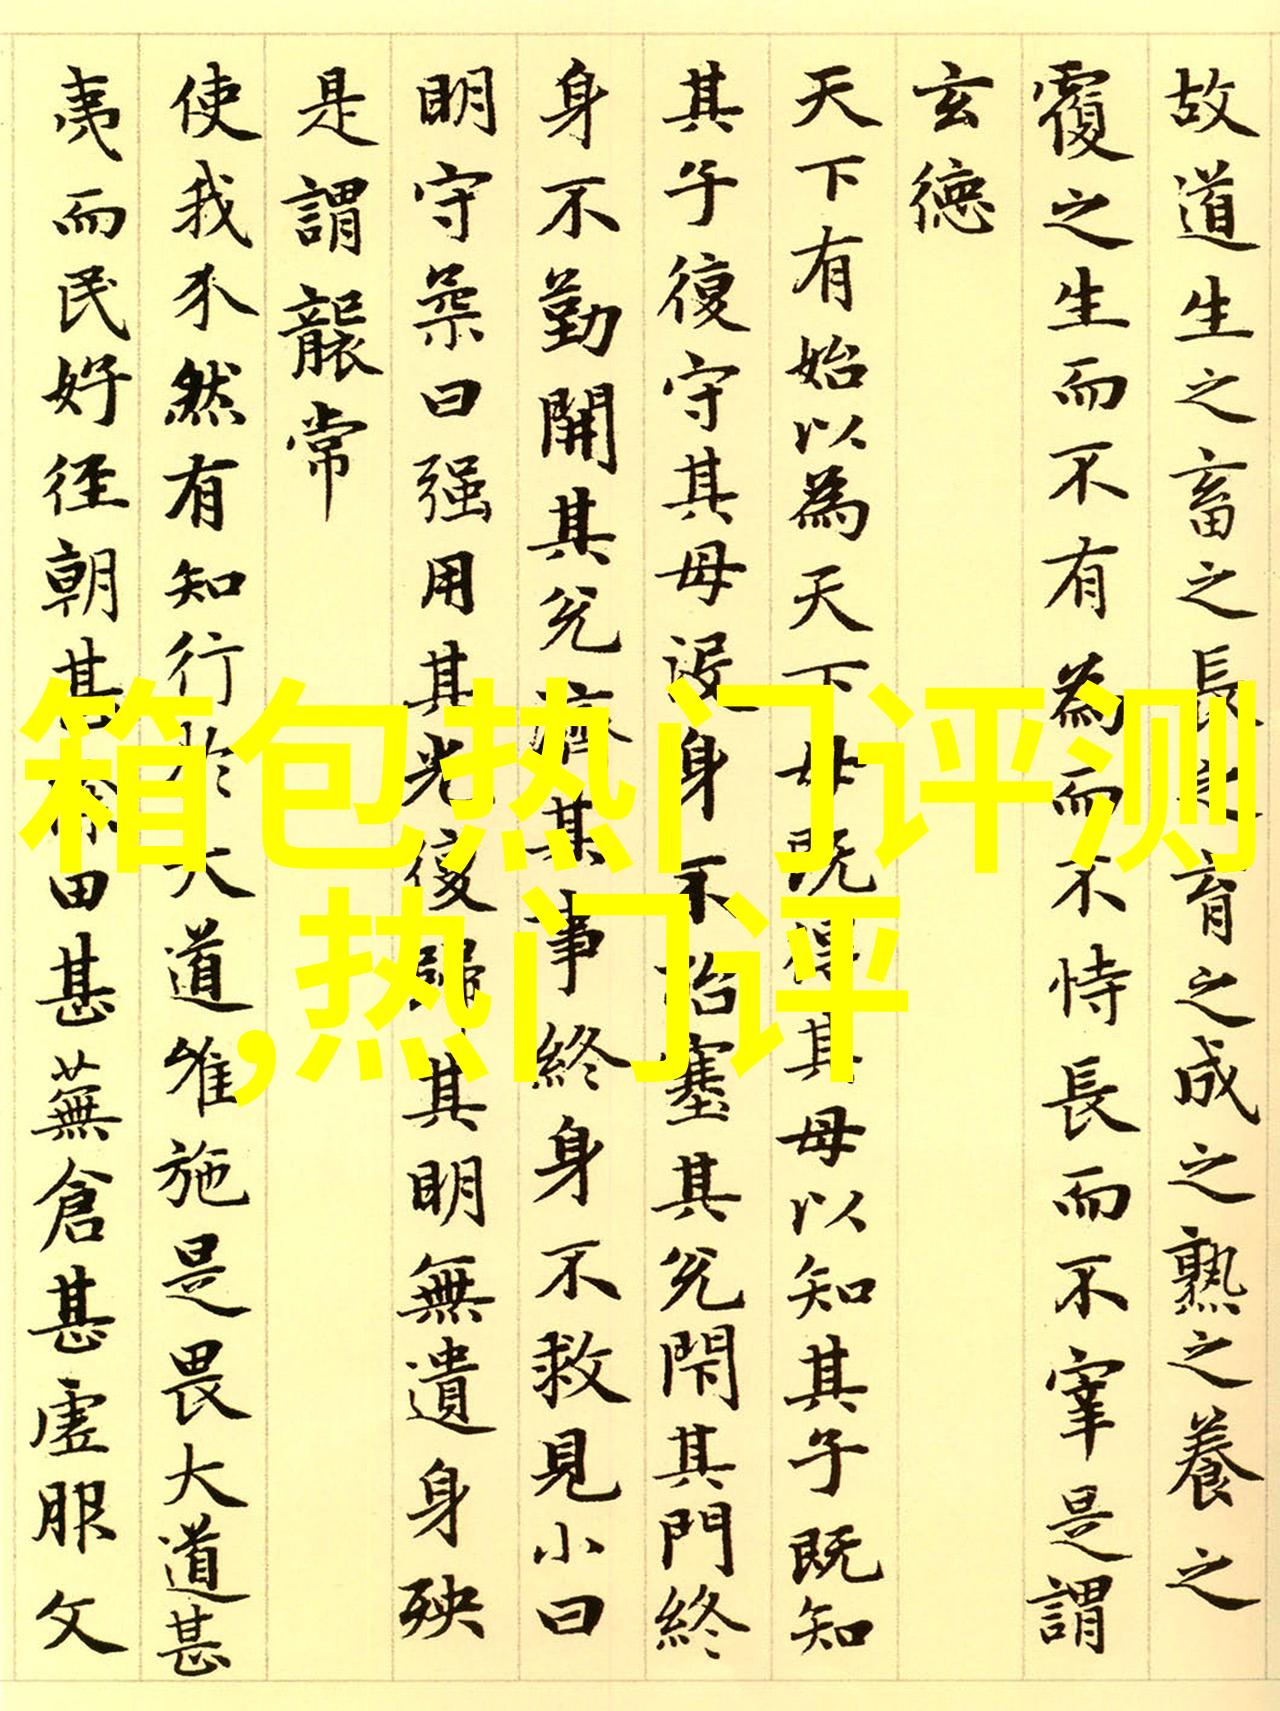 故道生之畜之長之育之成之熟之養之
覆之生而不有為而不恃長而不宰是謂
玄德
天下有始以為天下母既得其母以知其子既知
其子復守其母没身不殆塞其兌閇其門終
身不勤開其兌濟其事終身不救見小曰
明守柔曰强用其光復歸其明無遺身殃
是謂襲常
使我介然有知行於大道唯施是畏大道甚
夷而民好徑朝甚除田甚蕪倉甚虚服文
箱包热门评测
,热门评